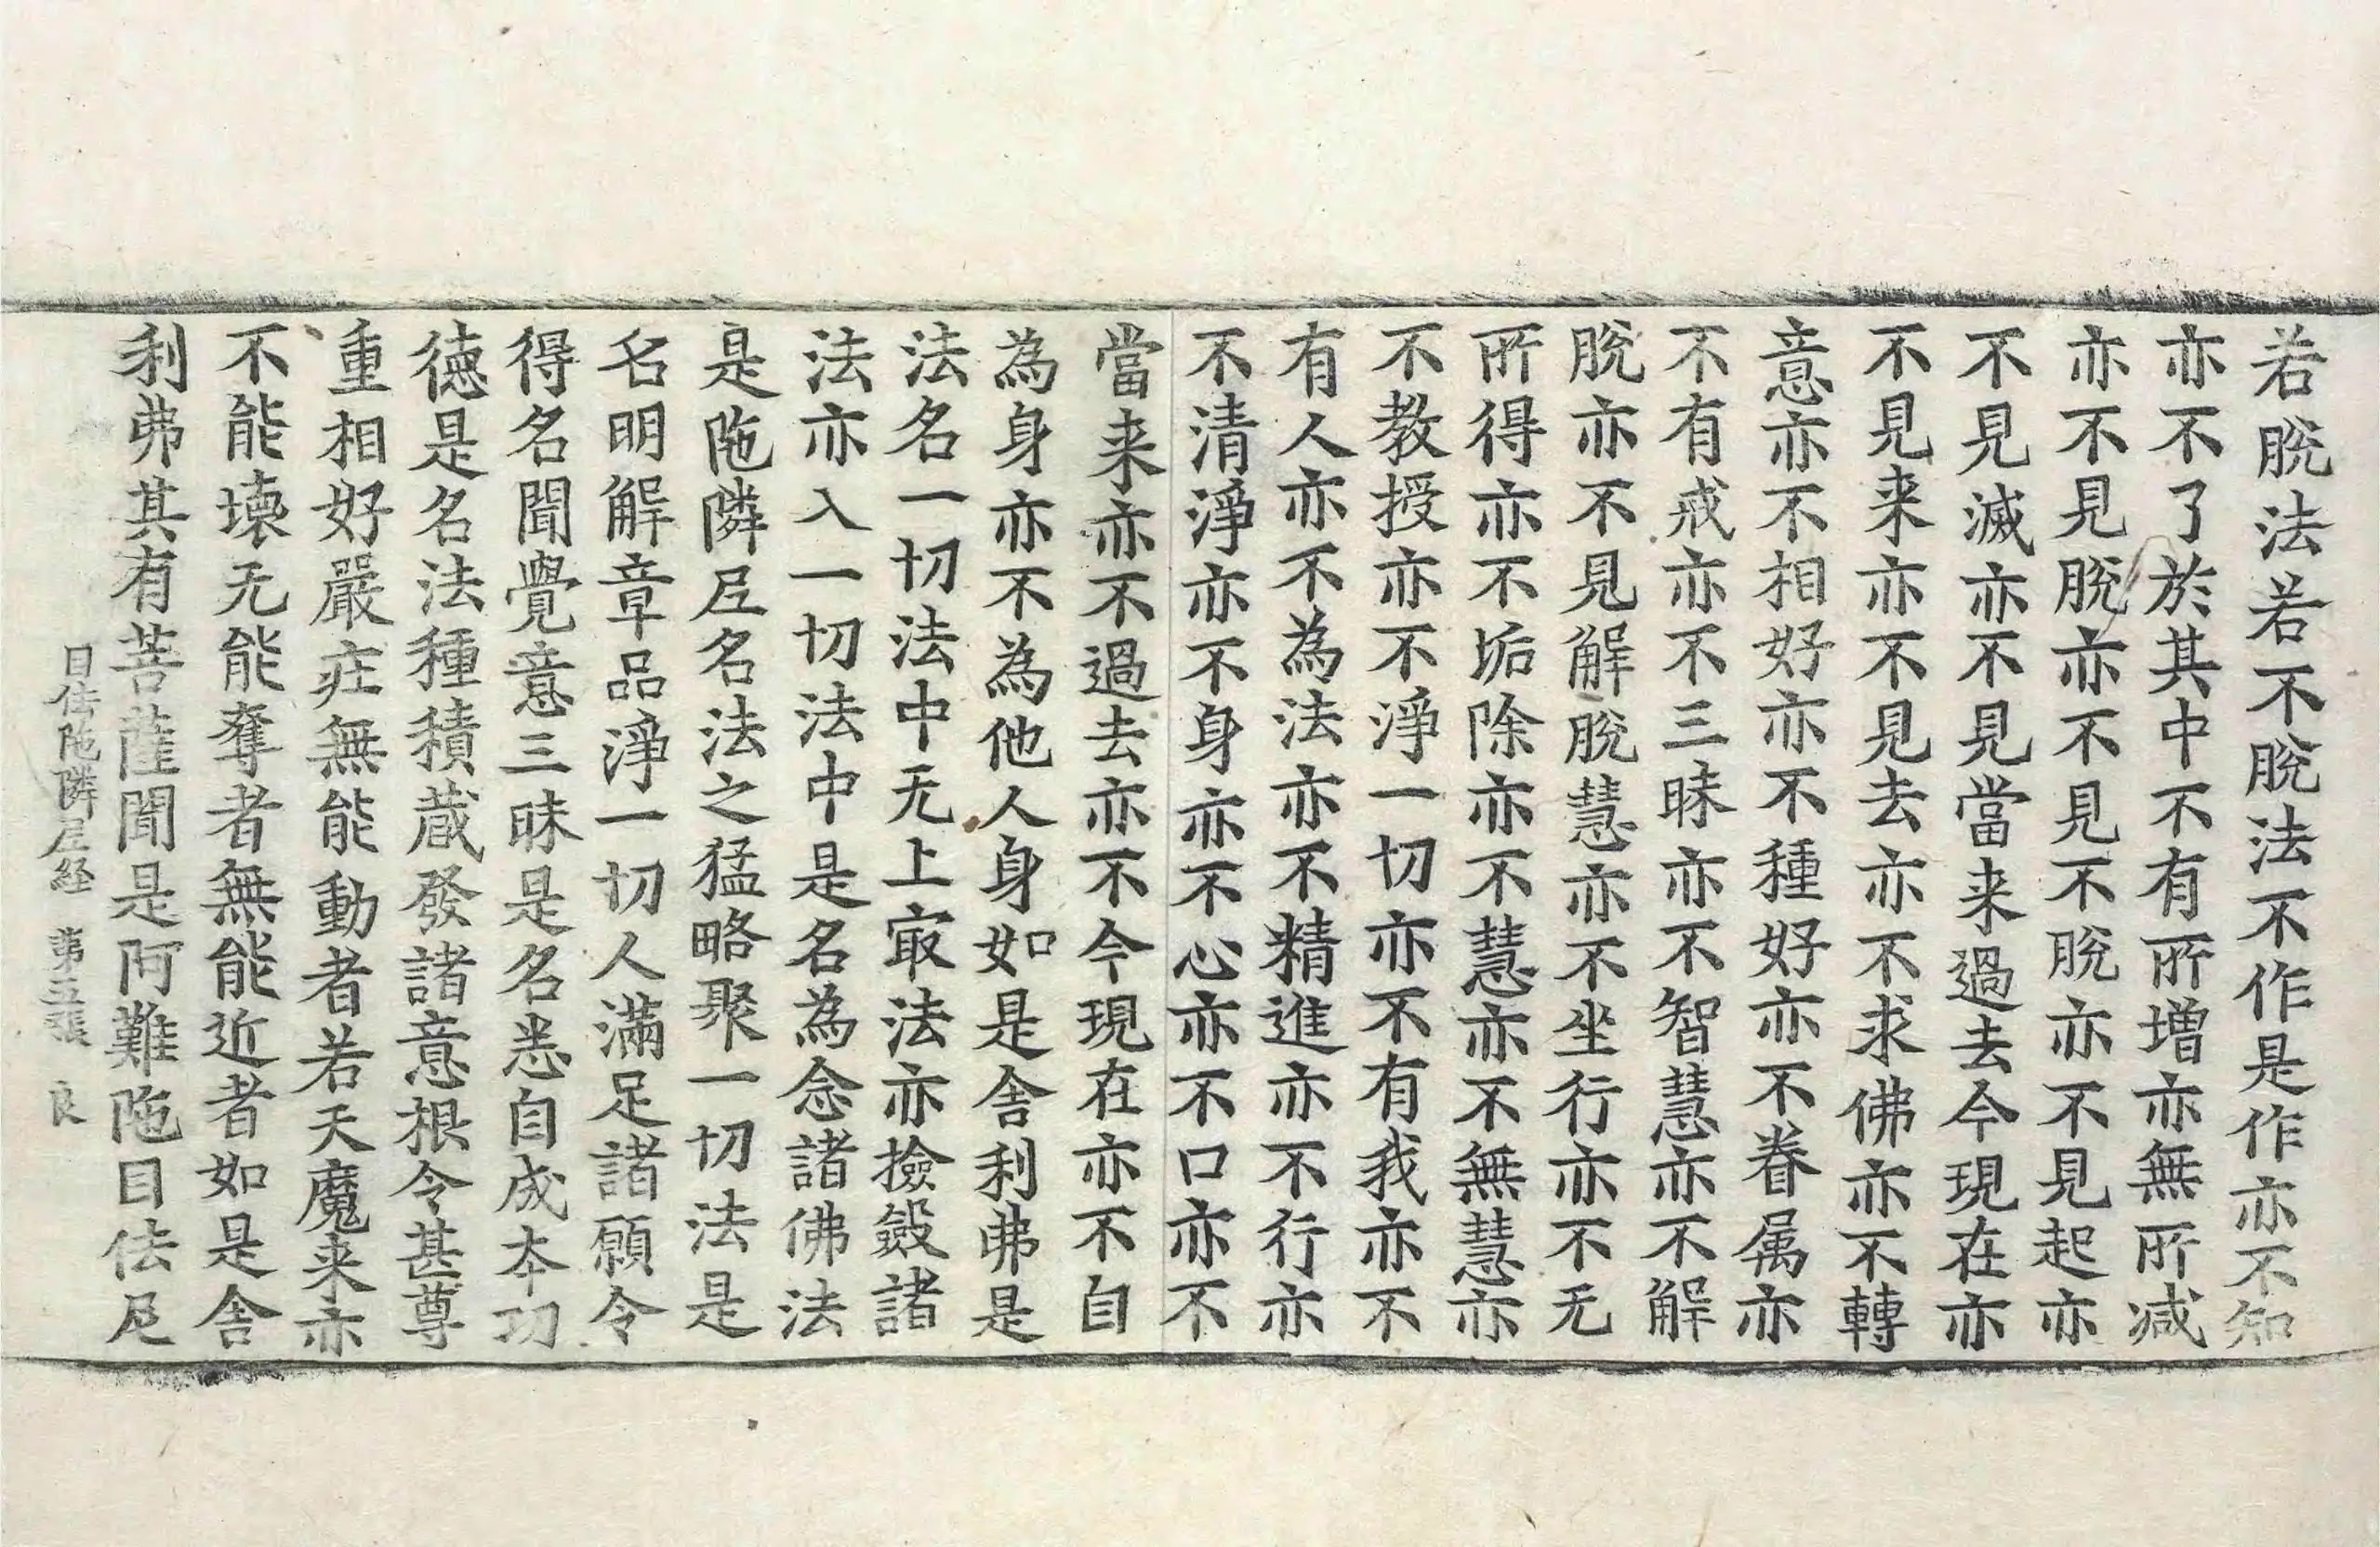 若脫法若不脫法不作是作亦不知
亦不了於其中不有所增亦無所减
亦不見脫亦不見不脫亦不見起亦
不見滅亦不見當来過去今現在亦
不見来亦不見去亦不求佛亦不轉
意亦不相好亦不種好亦不眷属亦
不有戒亦不三昧亦不智慧亦不解
脫亦不見解脫慧亦不坐行亦不无
所得亦不垢除亦不慧亦不無慧亦
不教授亦不淨一切亦不有我亦不
有人亦不為法亦不精進亦不行亦
不清淨亦不身亦不心亦不口亦不
當来亦不過去亦不今現在亦不自
為身亦不為他人身如是舍利弗是
法名一切法中无上㝡法亦撿斂諸
法亦入一切法中是名為念諸佛法
是陁隣𡰱名法之猛略聚一切法是
名明解章品淨一切人滿足諸願令
得名聞覺意三昧是名悉自成夲功
徳是名法種積蔵發諸意根令甚尊
重相好嚴庄無能動者若天魔来亦
不能壊无能奪者無能近者如是舍
利弗其有菩薩聞是阿難陁目佉𡰱
目佉陁隣𡰱経　第五張　良